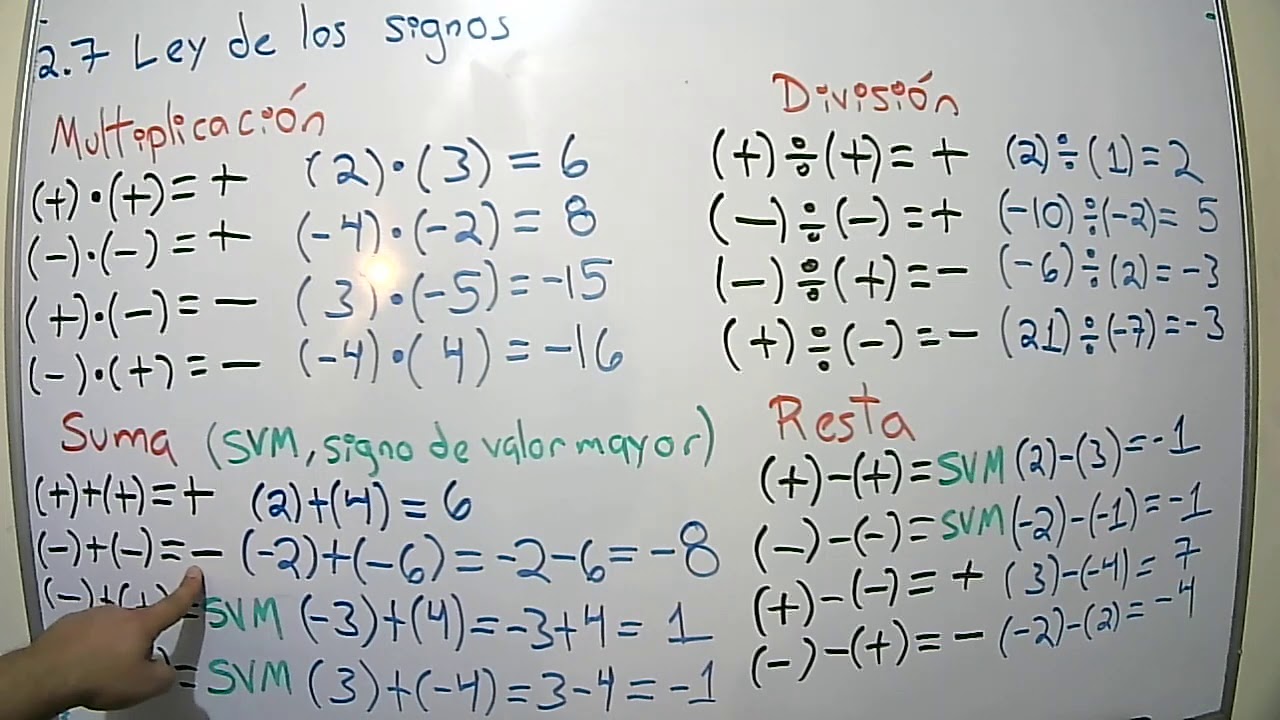 2.7 Ley de los signos
Multiplicación
(+)·(+)=+ (2)·(3)=6
(-)·(-)=+ (-4)·(-2)=8
(+)·(-)=- (3)·(-5)=-15
(-)·(+)=- (-4)·(4)=-16
División
(+)÷(+)=+ (2)÷(1)=2
(-)÷(-)=+ (-10)÷(-2)=5
(-)÷(+)=- (-6)÷(2)=-3
(+)÷(-)=- (21)÷(-7)=-3
Suma (SVM, signo de valor mayor)
(+)+(+)=+ (2)+(4)=6
(-)+(-)=- (-2)+(-6)=-2-6=-8
(-)+(+)=SVM (-3)+(4)=-3+4=1
=SVM (3)+(-4)=3-4=-1
Resta
(+)-(+)=SVM (2)-(3)=-1
(-)-(-)=SVM (-2)-(-1)=-1
(+)-(-)=+ (3)-(-4)=7
(-)-(+)=- (-2)-(2)=-4